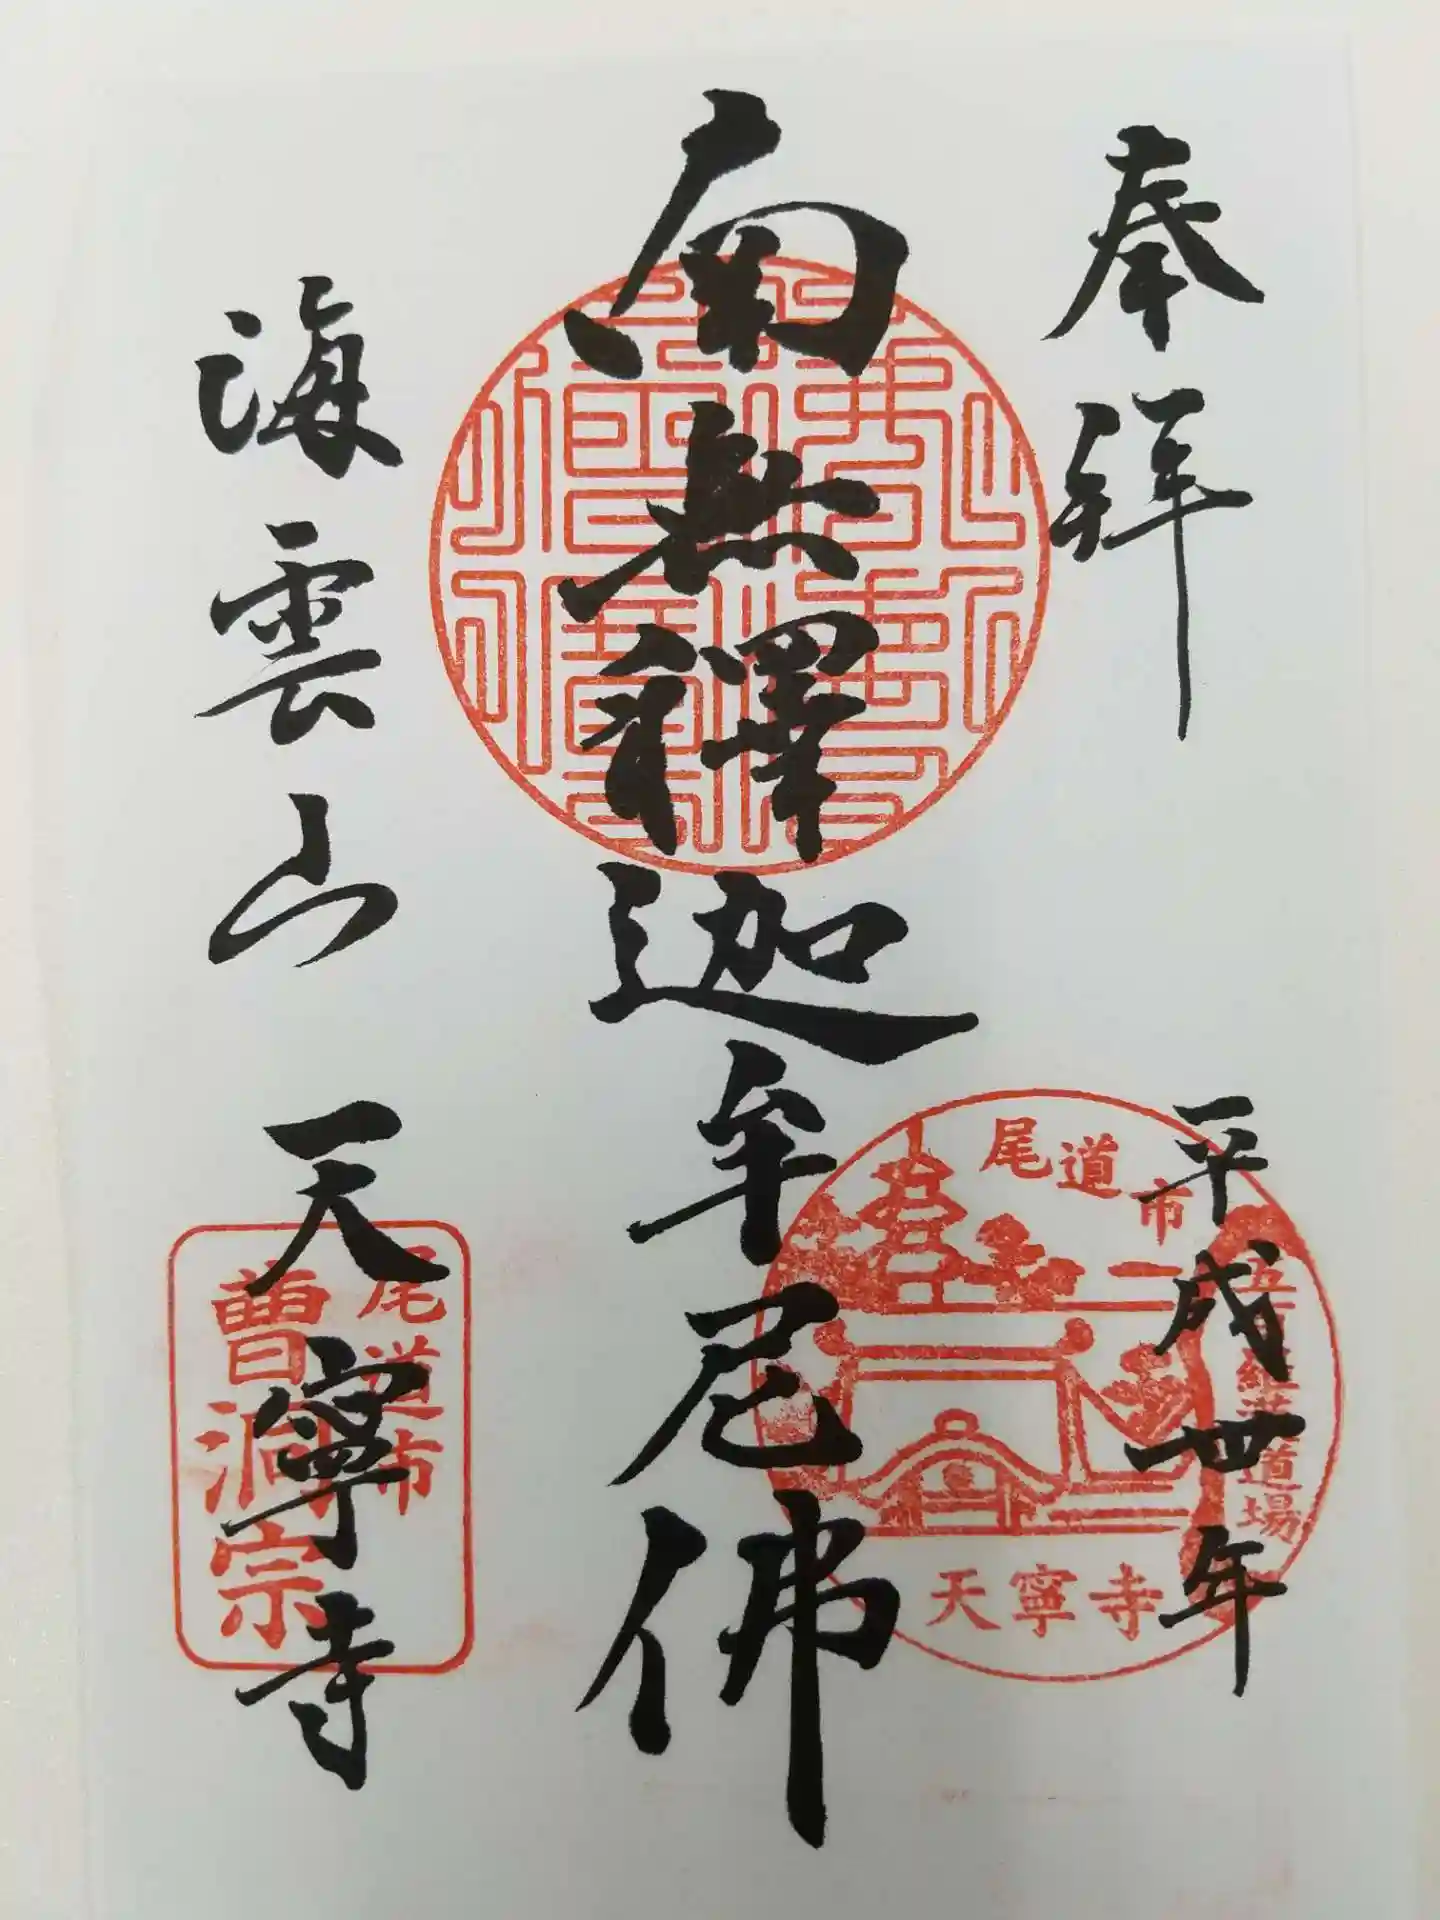 奉拜
平成卅年
南無釋迦牟尼佛
海雲山 天寧寺
尾道市
五百羅漢道場
天寧寺
尾道市
曹洞宗